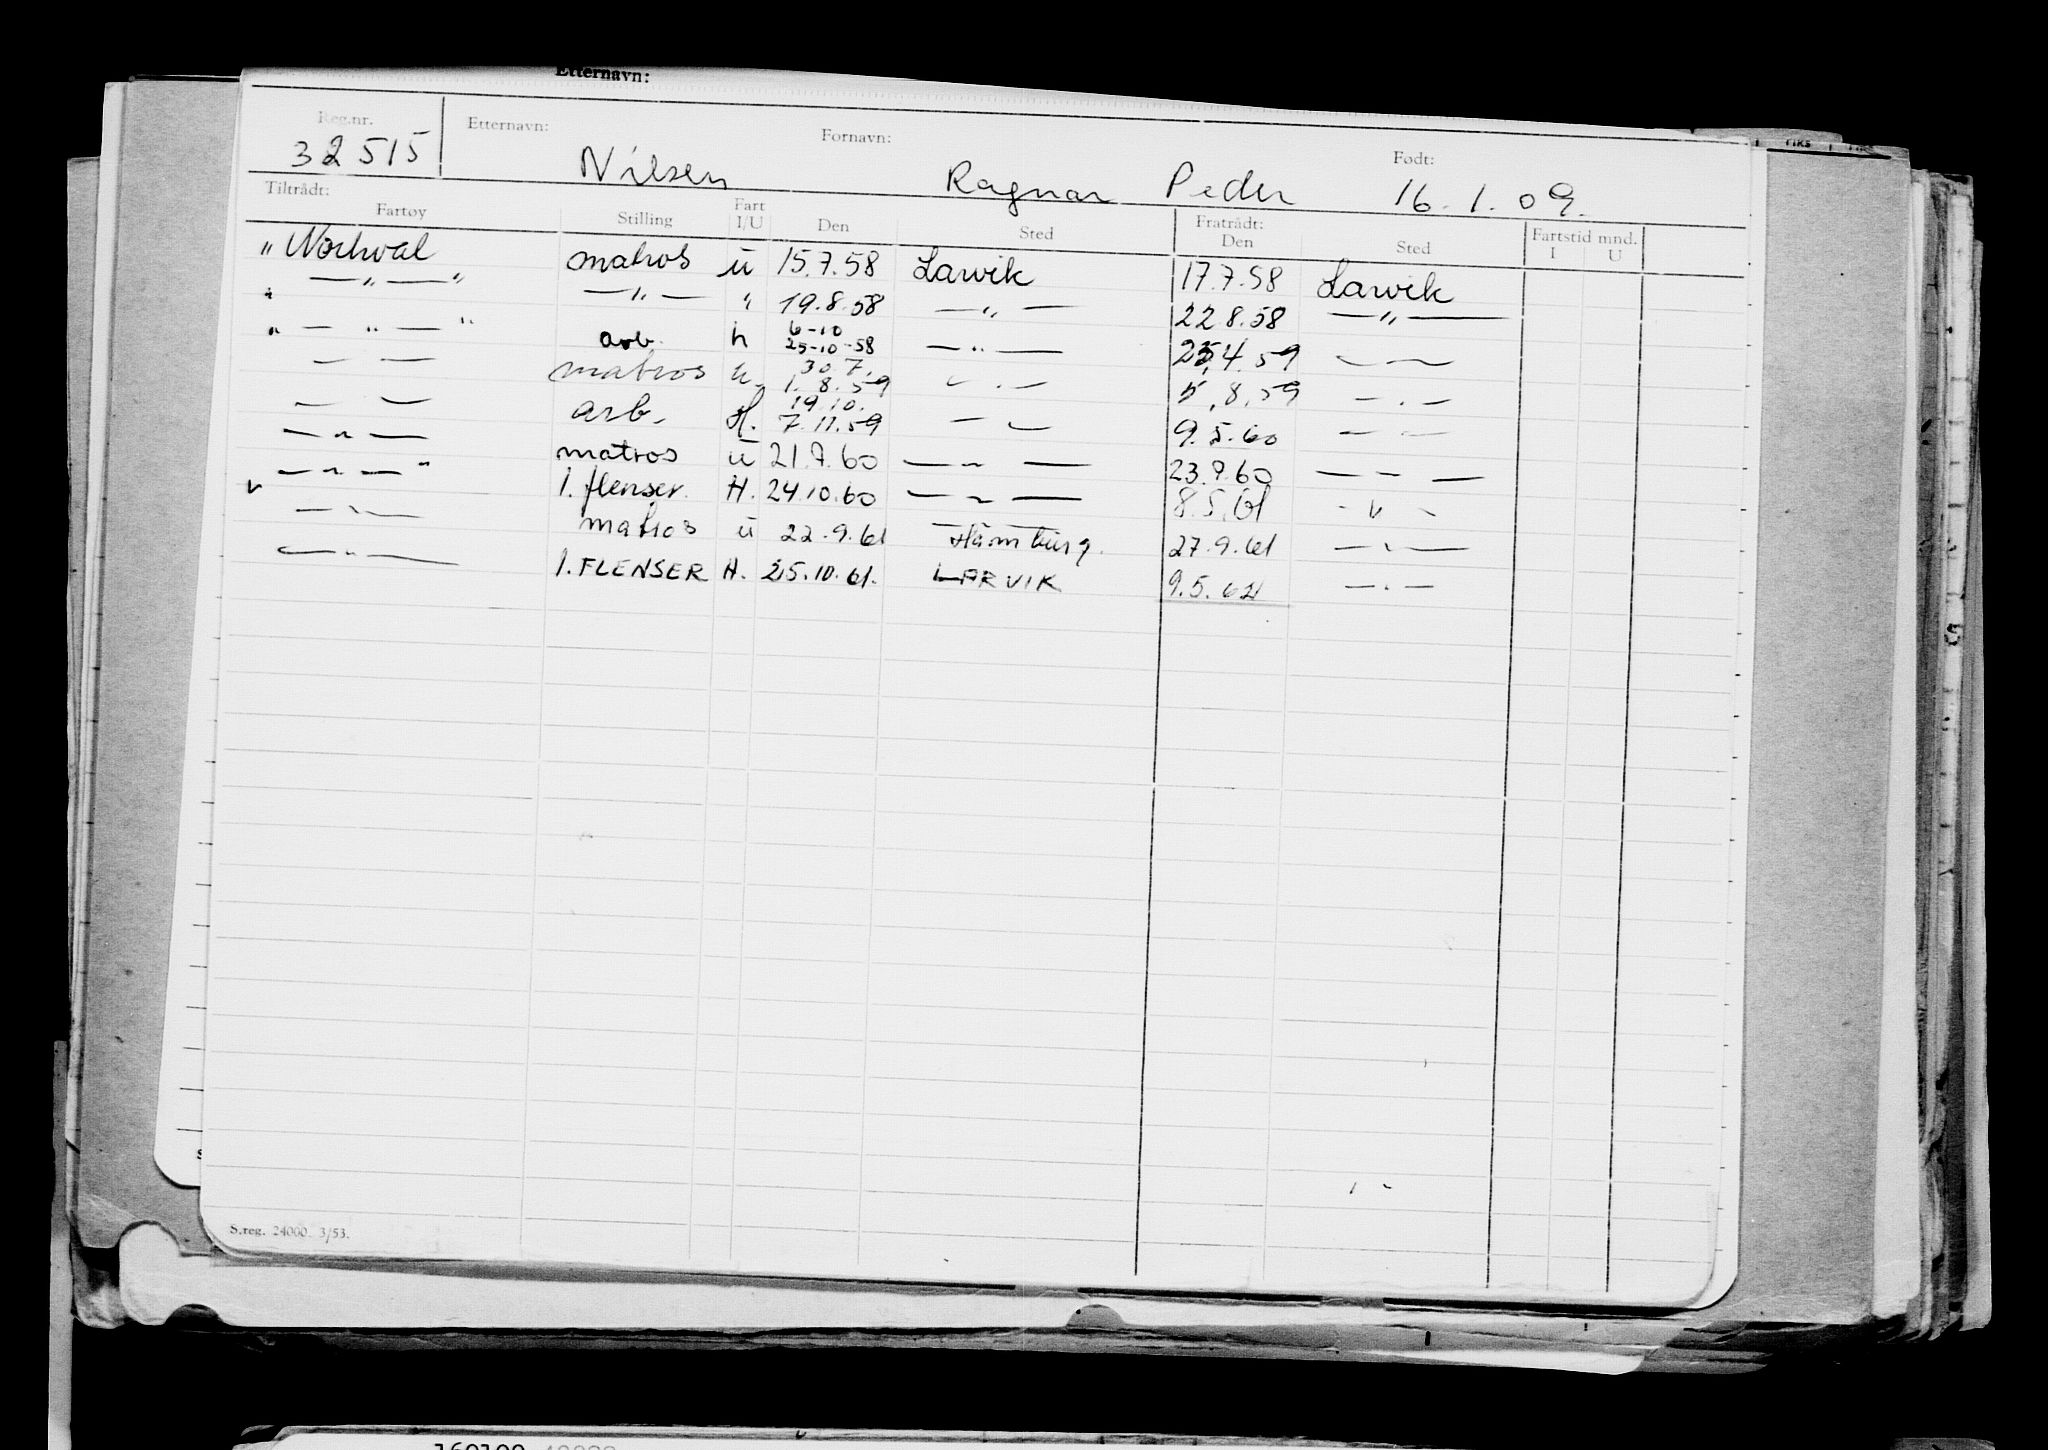 Etternavn:
Reg.nr. Etternavn: Fornavn: Født:
32515 Nilsen Ragnar Peder 16.1.09.
Tiltrådt: Fratrådt: Fartstid mnd.
Fartøy Stilling Fart I/U Den Sted Den Sted I U
" Norhval matros u 15.7.58 Larvik 17.7.58 Larvik
" — " — " — " — " 19.8.58 — " — 22.8.58 — " —
" — " — " arb. h 6-10 25-10-58 — " — 25.4.59 — —
— — matros u. 30.7. 1.8.59 — . — 5.8.59 — . —
— . — arb. H. 19.10. 7.11.59 — — 9.5.60 — —
— " — matros u 21.7.60 — " — 23.7.60 — — —
— " — " 1. flenser. H. 24.10.60 — " — 8.5.61 - " -
v — " — matros u 22.9.61 Hamburg. 27.9.61 — " —
— " — 1. FLENSER H. 25.10.61. LARVIK 9.5.62 — . —
S.reg. 24000. 3/53.